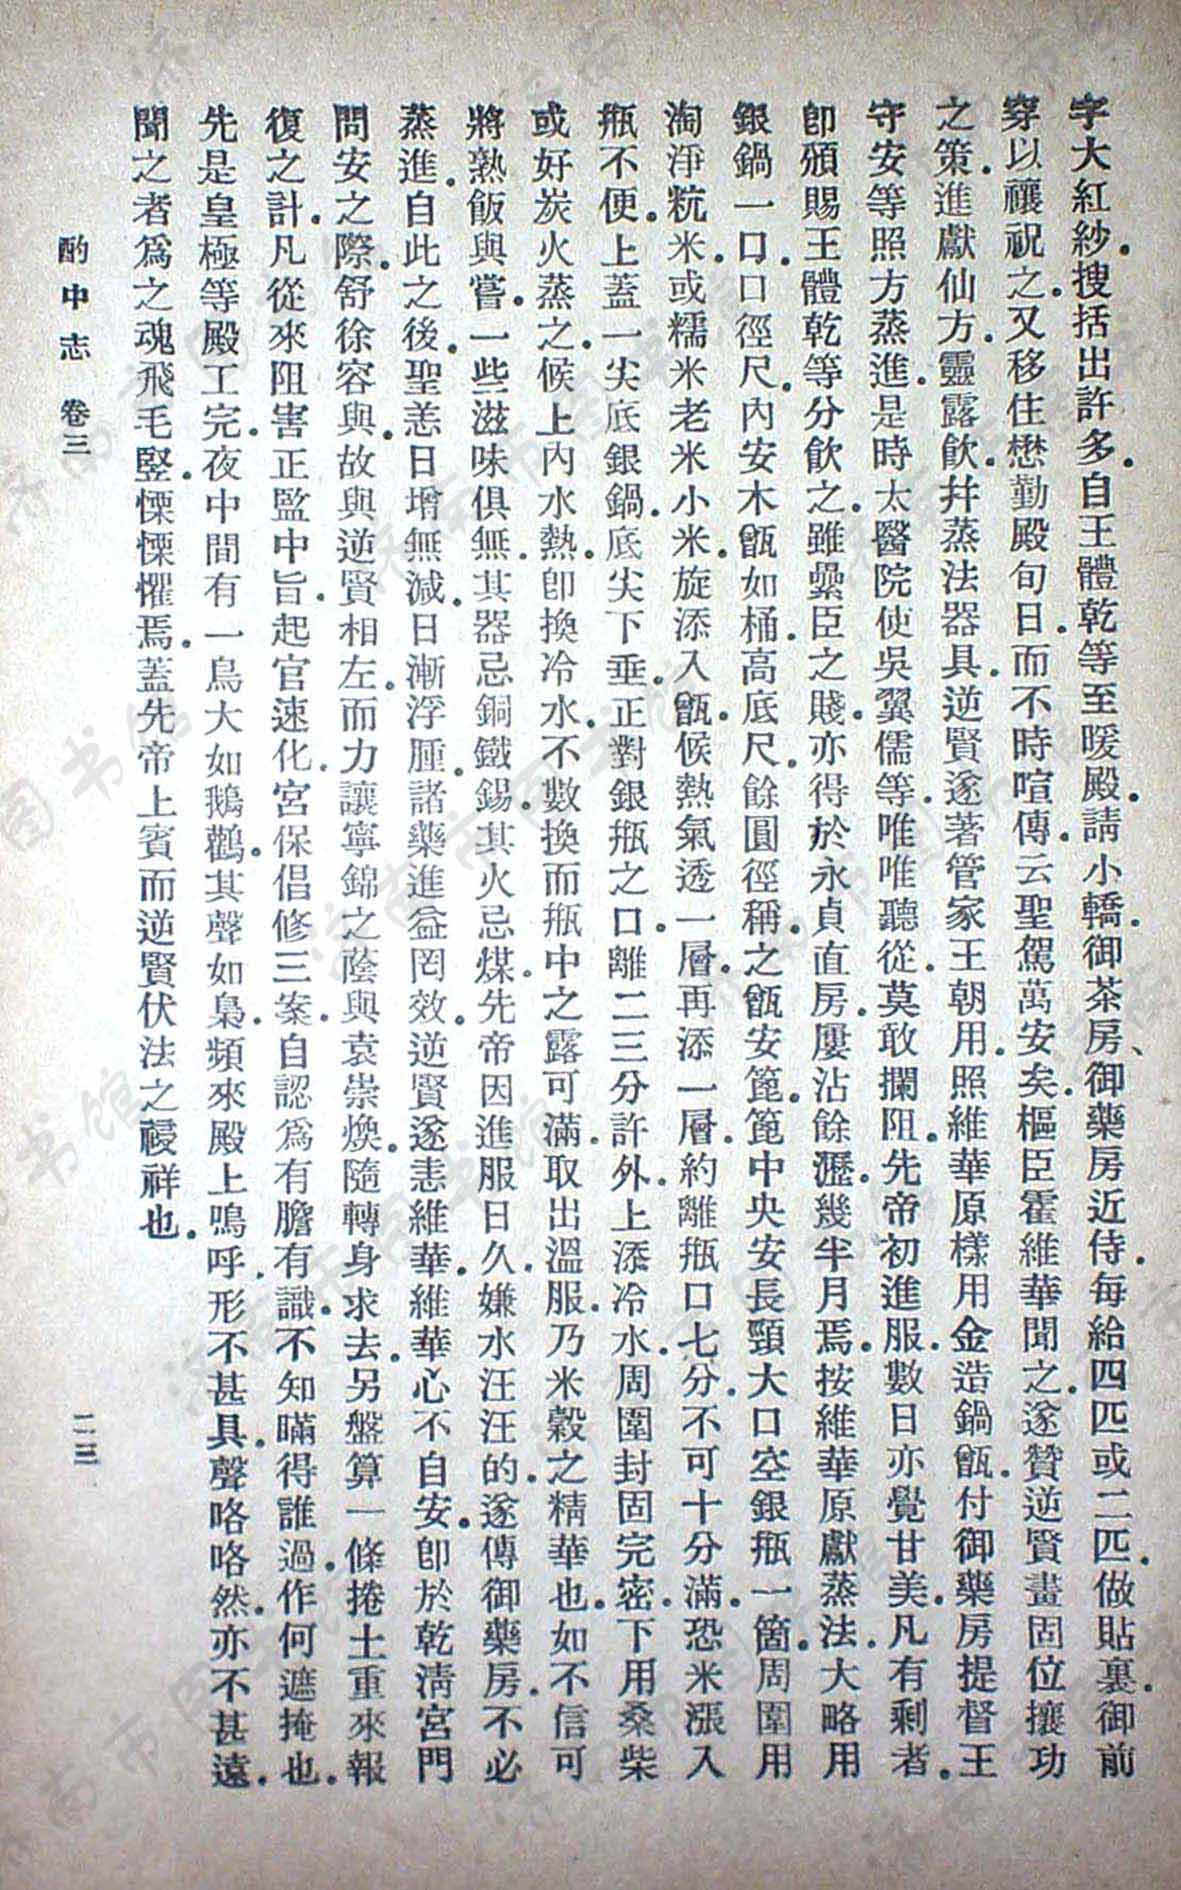 字大紅紗。搜括出許多。自王體乾等至暖殿。請小轎。御茶房、御藥房近侍。每給四匹或二匹。做貼裏。御前
穿以禳祝之。又移住懋勤殿旬日。而不時喧傳。云聖駕萬安矣。樞臣霍維華聞之。遂贊逆賢畫固位攘功
之策。進獻仙方。靈露飲。幷蒸法器具。逆賢遂著管家王朝用。照維華原樣用金造鍋甑。付御藥房提督王
守安等照方蒸進。是時太醫院使吳翼儒等。唯唯聽從。莫敢攔阻。先帝初進服。數日亦覺甘美。凡有剩者。
卽頒賜王體乾等分飲之。雖纍臣之賤。亦得於永貞直房屢沾餘瀝。幾半月焉。按維華原獻蒸法。大略用
銀鍋一口。口徑尺。內安木甑如桶。高底尺餘圓徑稱之。甑安箆。箆中央安長頸大口空銀瓶一箇。周圍用
淘淨粇米。或糯米老米小米。旋添入甑。候熱氣透一層。再添一層。約離瓶口七分。不可十分滿。恐米漲入
瓶不便。上蓋一尖底銀鍋。底尖下垂。正對銀瓶之口。離二三分許。外上添冷水。周圍封固完密。下用桑柴
或好炭火蒸之。候上內水熱。卽換冷水。不數換而瓶中之露可滿。取出溫服。乃米穀之精華也。如不信可
將熟飯與嘗。一些滋味俱無。其器忌銅鐵錫。其火忌煤。先帝因進服日久。嫌水汪汪的。遂傳御藥房。不必
蒸進。自此之後。聖恙日增無減。日漸浮腫。諸藥進益罔效。逆賢遂恚維華。維華心不自安。卽於乾清宮門
問安之際。舒徐容與。故與逆賢相左。而力讓寧錦之蔭與袁崇煥。隨轉身求去。另盤算一條捲土重來報
復之計。凡從來阻害正監中旨。起官速化。宮保倡修三案。自認爲有膽有識。不知瞞得誰過。作何遮掩也。
先是皇極等殿工完。夜中間有一鳥大如鵝鸛。其聲如梟。頻來殿上鳴呼。形不甚具。聲咯咯然。亦不甚遠。
聞之者爲之魂飛毛竪。慄慄懼焉。蓋先帝上賓而逆賢伏法之祲祥也。
酌中志 卷三
二三